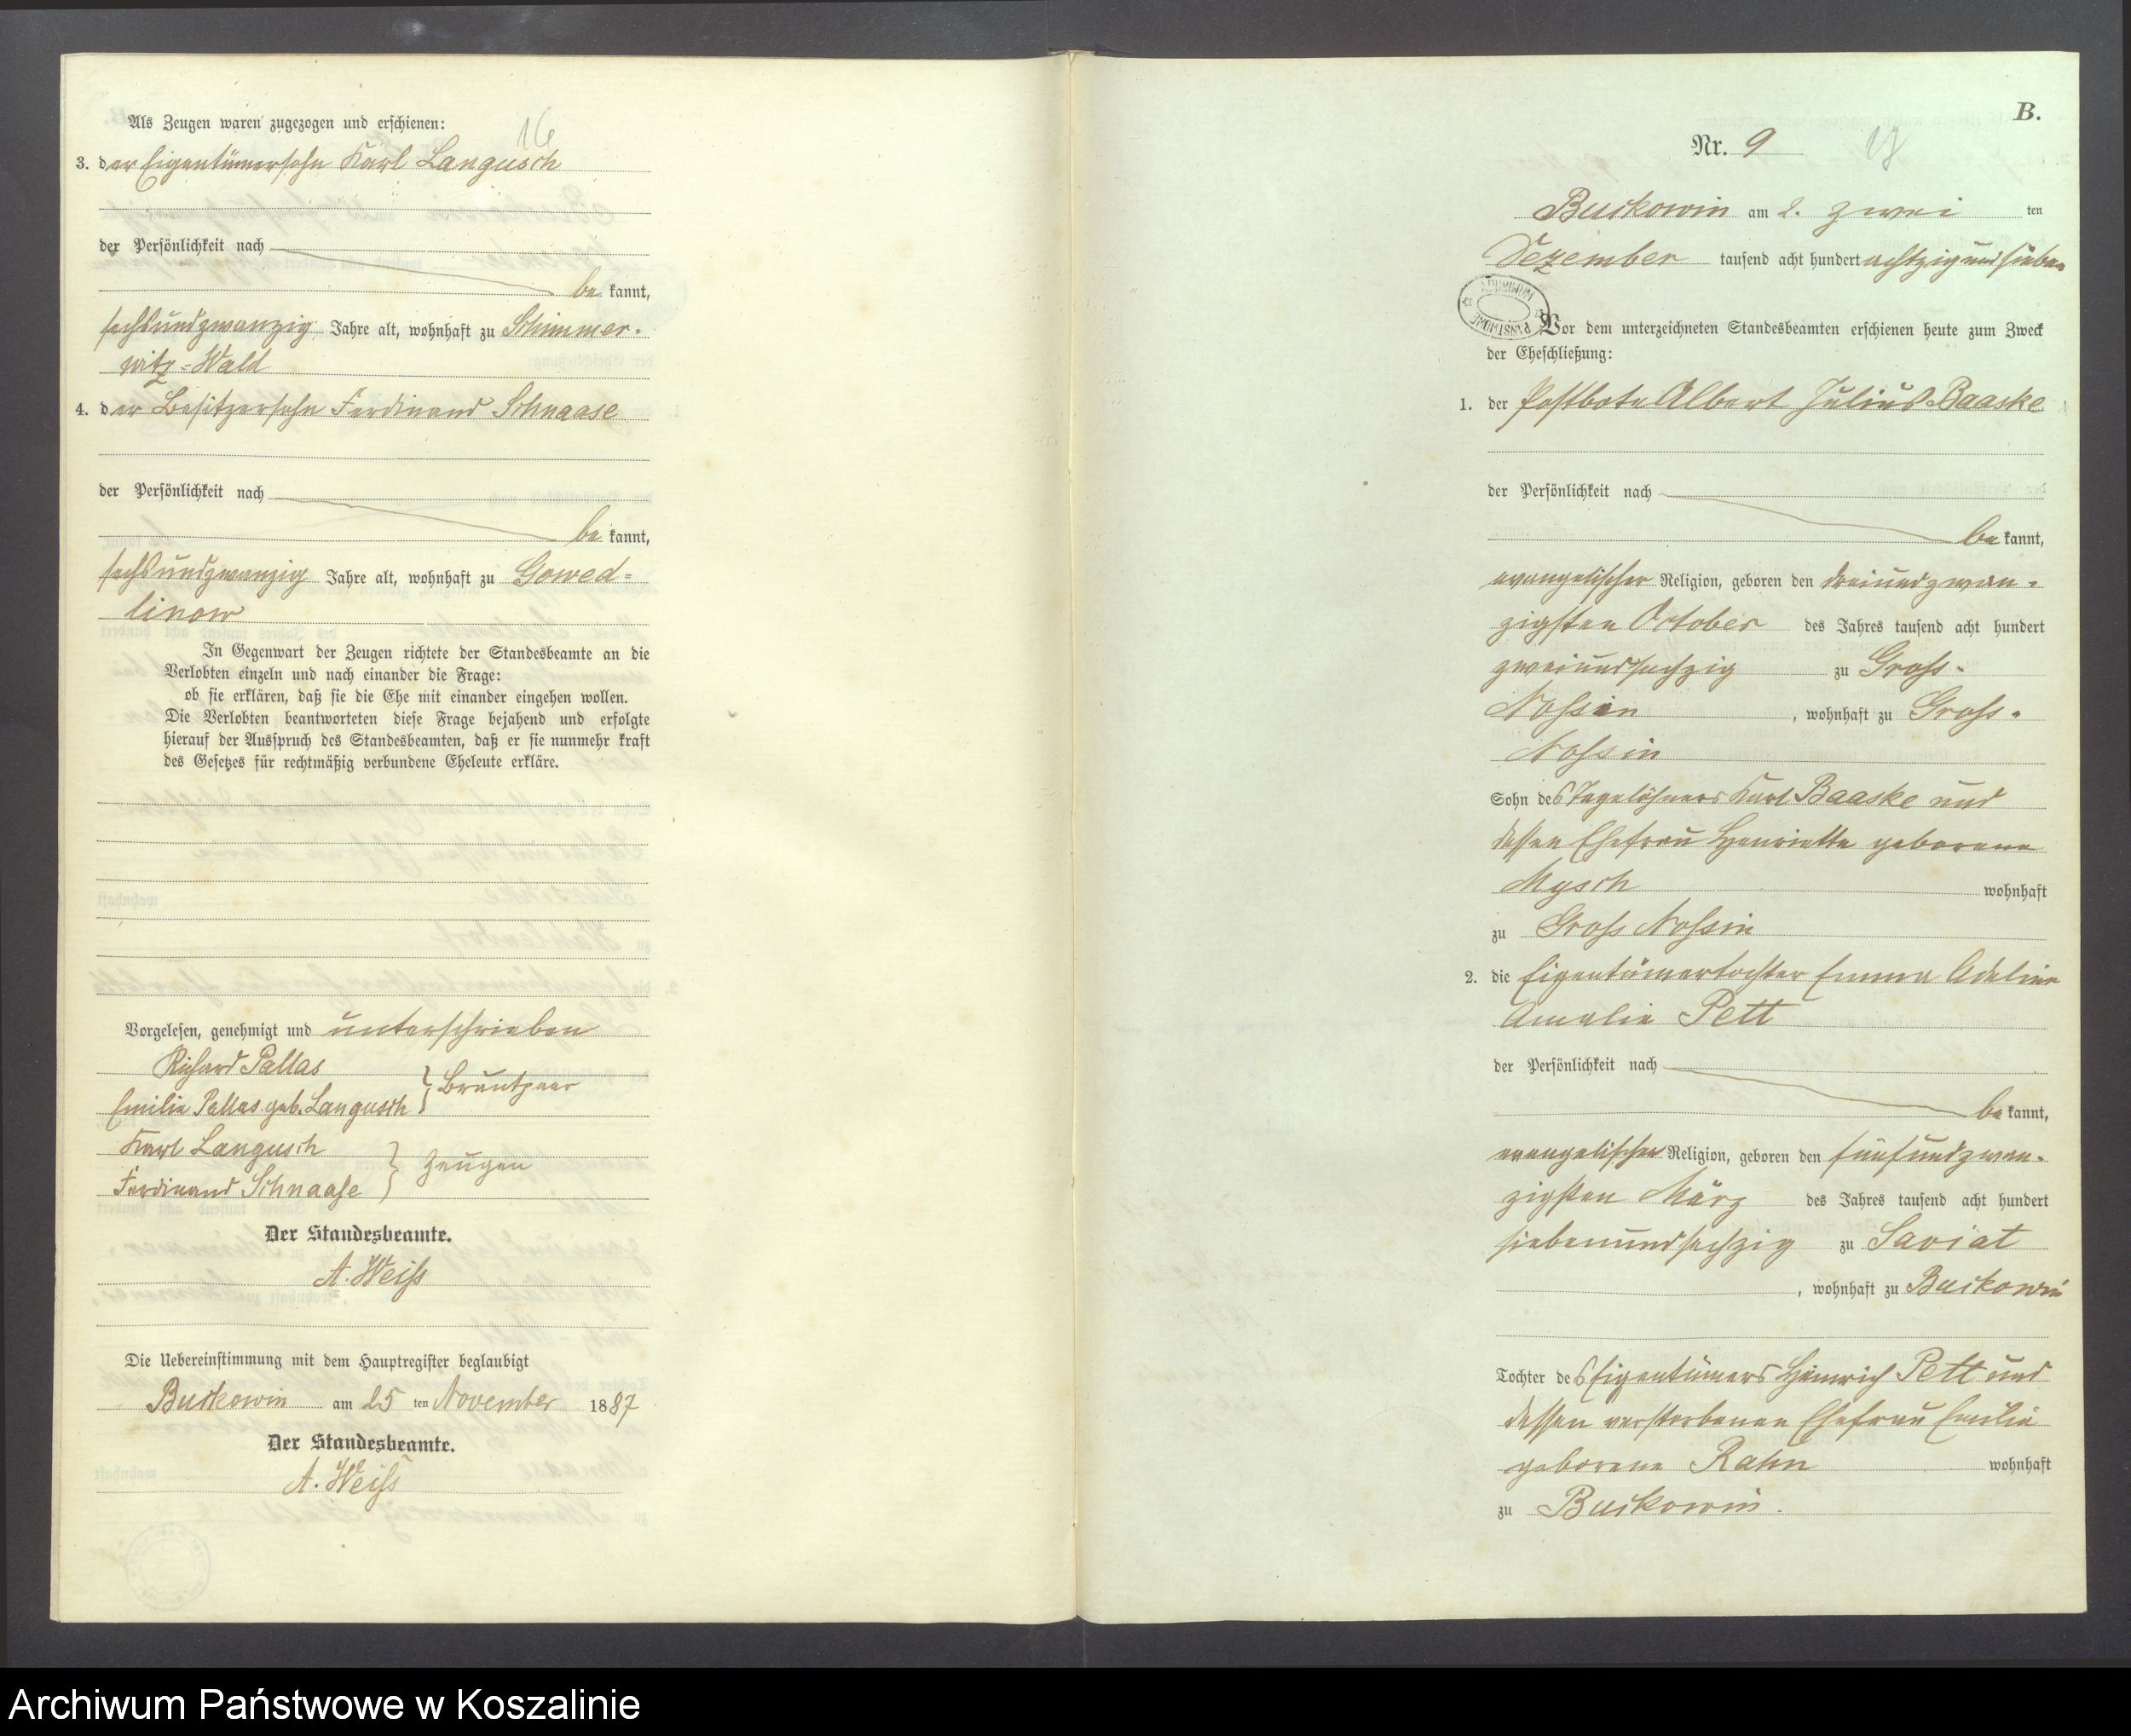 Als Zeugen waren zugezogen und erschienen:
16
3. der Eigentümersohn Karl Langusch
der Persönlichkeit nach
be kannt,
sechsundzwanzig Jahre alt, wohnhaft zu Schimmer-
witz-Wald
4. der Besitzersohn Ferdinand Schnaase
der Persönlichkeit nach
be kannt,
sechsundzwanzig Jahre alt, wohnhaft zu Gowed=
linow
In Gegenwart der Zeugen richtete der Standesbeamte an die
Verlobten einzeln und nach einander die Frage:
ob sie erklären, daß sie die Ehe mit einander eingehen wollen.
Die Verlobten beantworteten diese Frage bejahend und erfolgte
hierauf der Ausspruch des Standesbeamten, daß er sie nunmehr kraft
des Gesetzes für rechtmäßig verbundene Eheleute erkläre.
Vorgelesen, genehmigt und unterschrieben
Richard Pallas
Emilie Pallas geb. Langusch } Brautpaar
Karl Langusch
Ferdinand Schnaase } Zeugen
Der Standesbeamte.
A. Weiss
Die Uebereinstimmung mit dem Hauptregister beglaubigt
Buckowin am 25 ten November 1887
Der Standesbeamte.
A. Weiss
B.
Nr. 9
17
Buckowin am 2. zwei ten
Dezember tausend acht hundert achtzig und sieben
ARCHIWUM PAŃSTWOWE
Vor dem unterzeichneten Standesbeamten erschienen heute zum Zweck
der Eheschließung:
1. der Postbote Albert Julius Baaske
der Persönlichkeit nach
be kannt,
evangelischer Religion, geboren den dreiundzwan-
zigsten October des Jahres tausend acht hundert
zweiundsechzig zu Gross-
Nossin, wohnhaft zu Gross-
Nossin
Sohn des Tagelöhners Karl Baaske und
dessen Ehefrau Henriette geborene
Mysch wohnhaft
zu Gross Nossin
2. die Eigentümertochter Emma Adeline
Amalie Pett
der Persönlichkeit nach
be kannt,
evangelischer Religion, geboren den fünfundzwan-
zigsten März des Jahres tausend acht hundert
siebenundsechzig zu Saviat
, wohnhaft zu Buckowin
Tochter des Eigentümers Heinrich Pett und
dessen verstorbenen Ehefrau Emilie
geborene Rahn wohnhaft
zu Buckowin.
Archiwum Państwowe w Koszalinie